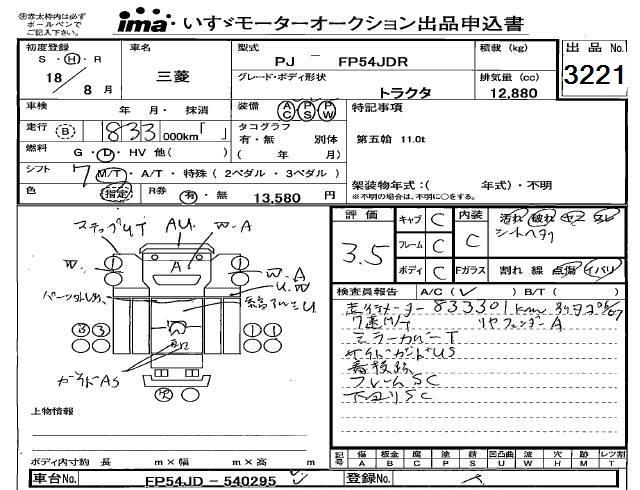 ㊟赤太枠内は必ず
ボールペンで
ご記入下さい。
ima いすゞモーターオークション出品申込書
初度登録
S ・ H ・ R
18 / 8 月
車名
三菱
型式
PJ － FP54JDR
積載 (kg)
出品 No.
3221
グレード・ボディ形状
トラクタ
排気量 (cc)
12,880
車検 年 月・ 抹消
装備 AC PS PW
特記事項
走行 (B) 833 000km「 」
タコグラフ
有・無 別体
( 年 月)
第五輪 11.0t
燃料 G ・ D ・ HV 他( )
シフト 7 M/T ・ A/T ・ 特殊 ( 2ペダル ・ 3ペダル )
色 指定 R券 有 ・ 無 13,580 円
架装物年式：( 年式)・不明
※不明の場合は、不明に○をする。
評価
3.5
キャブ C
フレーム C
ボディ C
内装 C
汚れ 破れ ヤニ スレ
シートヘタリ
Fガラス 割れ 線 点傷 イバリ
ステップUT AU W-A
A
W
W-A
U.W
パーツ
U
ガードAS
検査員報告 A/C ( ) B/T ( )
走行メーター 833301km
7速M/T リヤフェンダーA
ミラーカバーT
サイドガードUS
フレームSC
下回りSC
上物情報
ボディ内寸約 長 m×幅 m×高 m
記号 傷 A 板金 B 腐 C 塗 P 錆 S 凹凸曲 U 波 W 穴 H 跡 M レツ割 T
車台No. FP54JD － 540295
登録No.